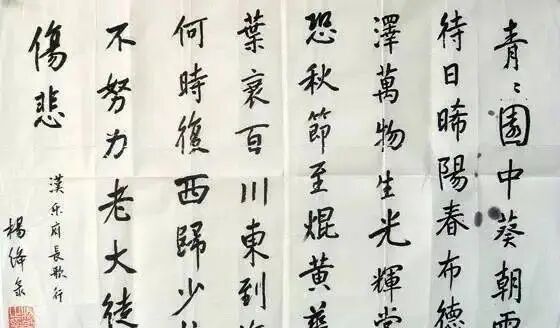 青〻園中葵朝
待日晞陽春布德
澤萬物生光輝常
恐秋節至焜黃華
葉衰百川東到海
何時復西歸少
不努力老大徒
傷悲
漢乐府長歌行
楊絳录